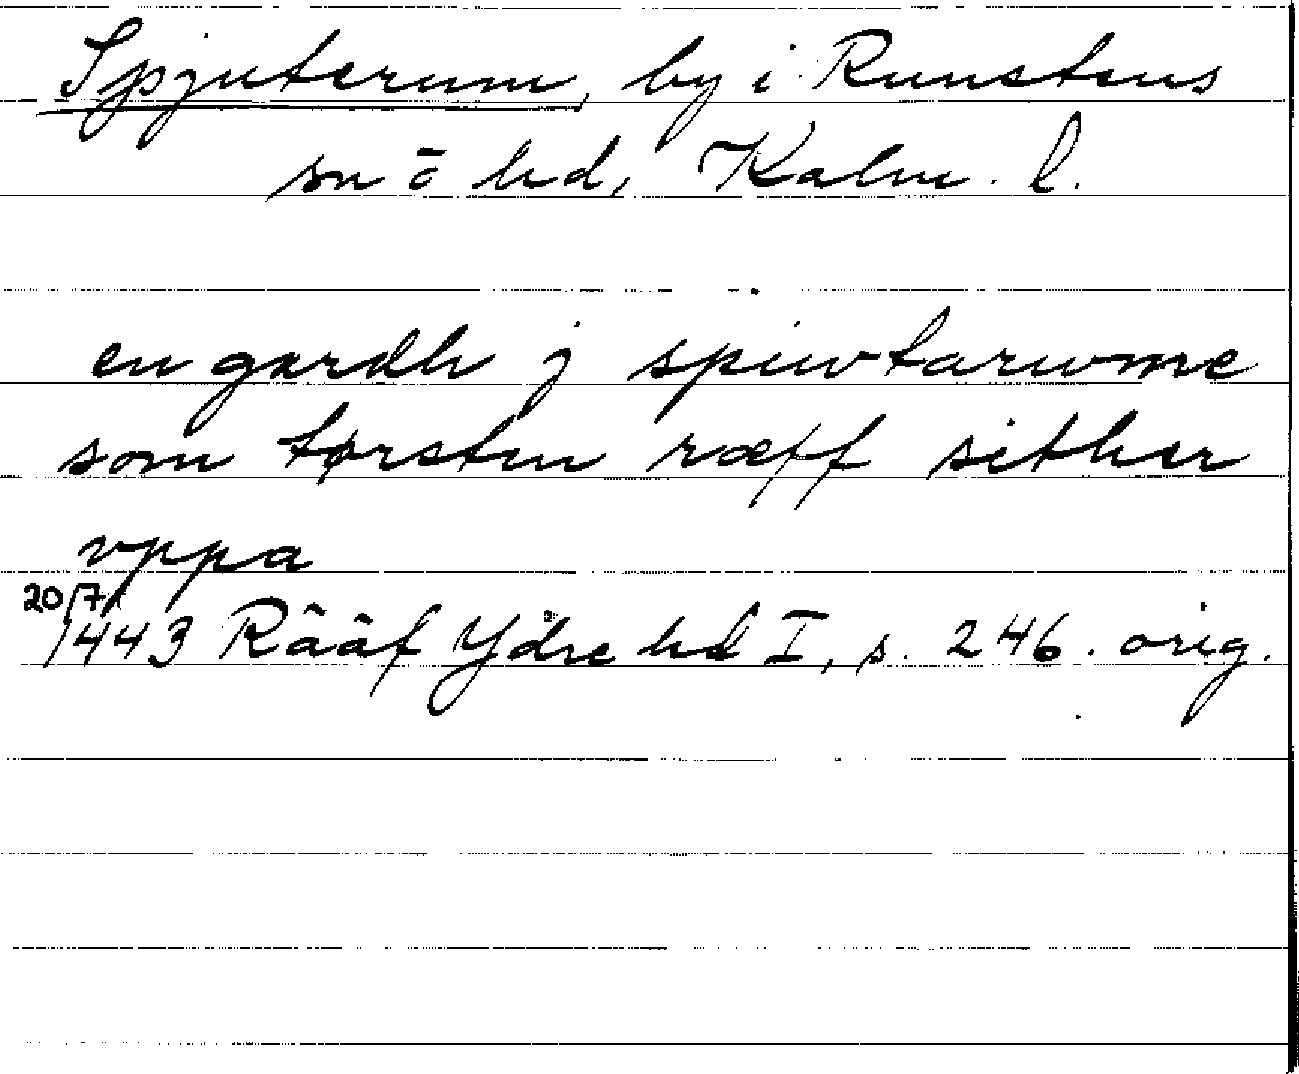 Spjuterum, by i Runstens
sn ö hd, Kalm. l.
en gardh j spiwtarwme
som tørsten ræff sither
vppa
20/7
1443 Rääf Ydre hd I, s. 246. orig.